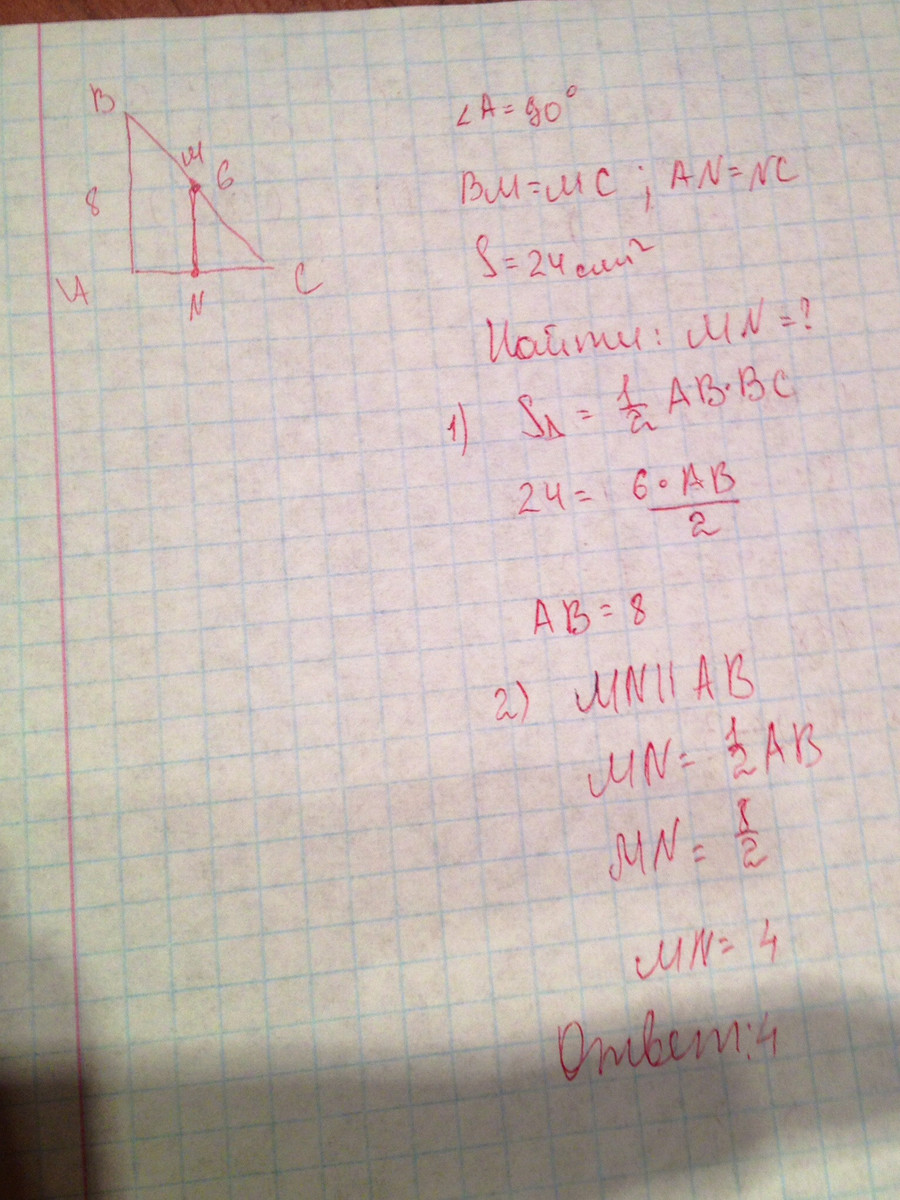 B
M
6
8
A
N
C
∠A=90°
BM=MC ; AN=NC
S=24 см²
Найти: MN=?
1) S△ = 1/2 AB·BC
24 = 6·AB/2
AB=8
2) MN || AB
MN= 1/2 AB
MN = 8/2
MN= 4
Ответ: 4